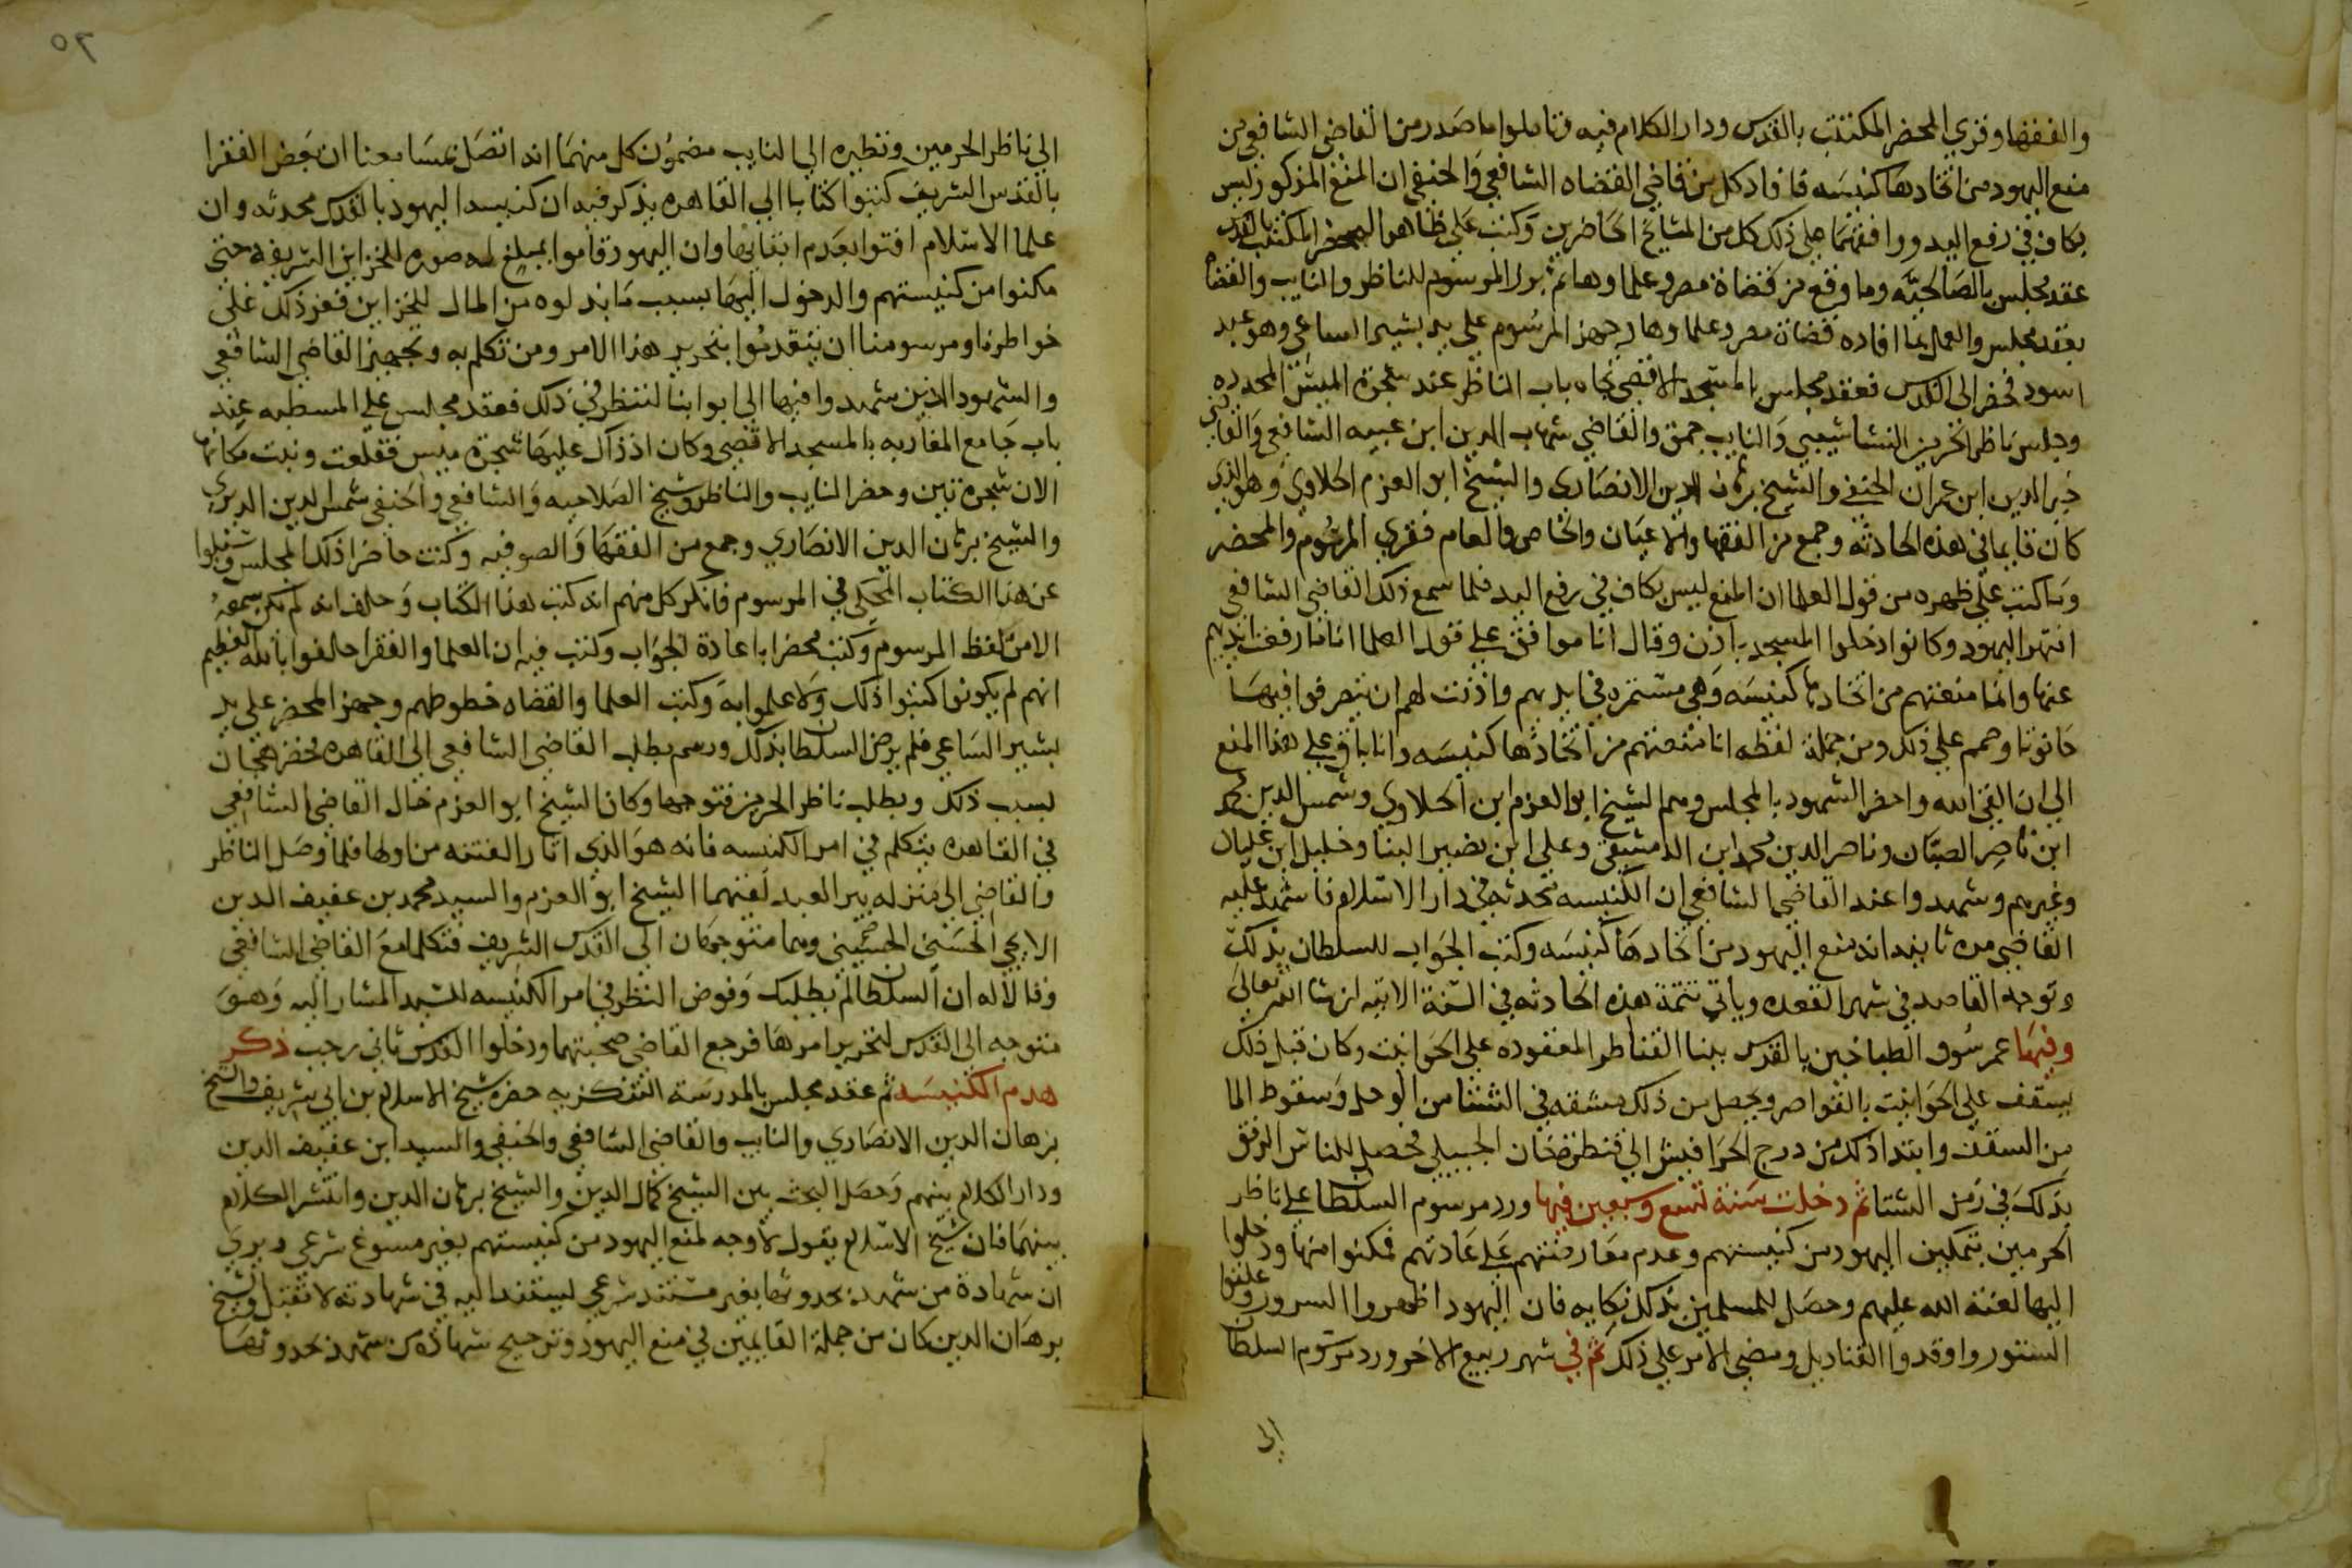 والفقها وقري المحضر المكتتب بالقدس ودار الكلام فيه وتاملوا ما صدر من القاضي الشافعي من
منع اليهود من اتخادها كنيسه فافاد كل من قاضي القضاه الشافعي والحنفي ان المنع المذكور ليس
بكاف في رفع اليد ووافقهما على ذلك كل من المشايخ الحاضرين وكتب على ظاهر المحضر المكتتب بالقدس
عقد مجلس بالصالحيه وما وقع من قضاة مصر وعلماوها ثم برز المرسوم للناظر والنايب والقضاه
بعقد مجلس والعمل بما افاده قضاة مصر وعلماوها وجهز المرسوم على يد بشير الساعي وهو عبد
اسود فحضر الى القدس فعقد مجلس بالمسجد الاقصي تجاه باب الناظر عند شجرة الميس المحدده
وجلس ناظر الحرمين النشاشيبي والنايب جقمق والقاضي شهاب الدين ابن عبيه الشافعي والقاضي
خير الدين ابن عمران الحنفي والشيخ برهان الدين الانصاري والشيخ ابو العزم الحلاوي وهو الذي
كان قايما في هذه الحادثه وجمع من الفقها والاعيان والخاص والعام فقري المرسوم والمحضر
وما كتب على ظهره من قول العلما ان المنع ليس بكاف في رفع اليد فلما سمع ذلك القاضي الشافعي
انتهر اليهود وكانوا دخلوا المسجد باذن وقال انا موافق على قول العلما انا ما رفعت ايديهم
عنها وانما منعتهم من اتخادها كنيسه وهي مستمره في ايديهم واذنت لهم ان يتصرفوا فيها
حانوتا وصمم على ذلك ومن جملة لفظه انا منعتهم من اتخاذها كنيسه وانا باق على هذا المنع
الى ان القى الله واحضر الشهود بالمجلس وهم الشيخ ابو العزم ابن الحلاوي وشمس الدين محمد
ابن ناصر الصبان وناصر الدين محمد ابن الدمشقي وعلي ابن نصير البنا وخليل ابن عليان
وغيرهم وشهدوا عند القاضي الشافعي ان الكنيسه محدثه في دار الاسلام فاشهد عليه
القاضي مره ثانيه انه منع اليهود من اتخادها كنيسه وكتب الجواب للسلطان بذلك
وتوجه القاصد في شهر القعده وياتي تتمة هذه الحادثه في السنة الاتيه ان شا الله تعالى
وفيها عمر سوق الطباخين بالقدس ببنا القناطر المعقوده على الحوانيت وكان قبل ذلك
يسقف على الحوانيت بالقواصر ويحصل من ذلك مشقه في الشتا من الوحل وسقوط الما
من السقف وابتدا ذلك من درج الحرافيش الى قنطرة خان الجبيلي فحصل للناس الرفق
بذلك في زمن الشتا ثم دخلت سنة تسع وسبعين فيها ورد مرسوم السلطان على ناظر
الحرمين بتمكين اليهود من كنيستهم وعدم معارضتهم على عادتهم فمكنوا منها ودخلوا
اليها لعنة الله عليهم وحصل للمسلمين بذلك نكايه فان اليهود اظهروا السرور وعلقوا
الستور واوقدوا القناديل ومضي الامر على ذلك ثم في شهر ربيع الاخر ورد مرسوم السلطان
الى
٦٥
الي ناظر الحرمين ونظيره الى النايب مضمون كل منهما انه اتصل بمسامعنا ان بعض الفقرا
بالقدس الشريف كتبوا كتابا الي القاهره يذكر فيه ان كنيسه اليهود بالقدس محدثه وان
علما الاسلام افتوا بعدم ابقايها وان اليهود قاموا بمبلغ له صوره للخزاين الشريفه حتى
مكنوا من كنيستهم والدخول اليها بسبب ما بذلوه من المال للخزاين فعز ذلك على
خواطرنا ومرسومنا ان يتقدموا بتحرير هذا الامر ومن تكلم به وتجهيز القاضي الشافعي
والشهود الذين شهدوا فيها الى ابوابنا لننظر في ذلك فعقد مجلس على المسطبه عند
باب جامع المغاربه بالمسجد الاقصي وكان اذ ذاك عليها شجرة ميس فقلعت ونبت مكانها
الان شجرة تين وحضر النايب والناظر وشيخ الصلاحيه والشافعي والحنفي شمس الدين الديري
والشيخ برهان الدين الانصاري وجمع من الفقها والصوفيه وكنت حاضرا ذلك المجلس وسئلوا
عن هذا الكتاب المحكي في المرسوم فانكر كل منهم انه كتب هذا الكتاب وحلف انه لم يكن سمعه
الا من لفظ المرسوم وكتب محضرا باعادة الجواب وكتب فيه ان العلما والفقرا حلفوا بالله العظيم
انهم لم يكونوا كتبوا ذلك ولا علموا به وكتب العلما والقضاه خطوطهم وجهز المحضر على يد
بشير الساعي فلم يرض السلطان بذلك ورسم بطلب القاضي الشافعي الى القاهره فحضر هجان
بسبب ذلك وبطلب ناظر الحرمين فتوجها وكان الشيخ ابو العزم خال القاضي الشافعي
في القاهره يتكلم في امر الكنيسه فانه هو الذي اثار الفتنه من اولها فلما وصل الناظر
والقاضي الى منزله بير العبد لقيهما الشيخ ابو العزم والسيد محمد بن عفيف الدين
الايجي الحسني الحسيني وهما متوجهان الى القدس الشريف فتكلما مع القاضي الشافعي
وقالا له ان السلطان لم يطلبك وفوض النظر في امر الكنيسه للسيد المشار اليه وهو
متوجه الى القدس لتحرير امرها فرجع القاضي صحبتهما ودخلوا القدس ثاني رجب ذكر
هدم الكنيسه ثم عقد مجلس بالمدرسة التنكزيه حضره شيخ الاسلام بن ابي شريف والشيخ
برهان الدين الانصاري والنايب والقاضي الشافعي والحنفي والسيد ابن عفيف الدين
ودار الكلام بينهم وحصل البحث بين الشيخ كمال الدين والشيخ برهان الدين وانتشر الكلام
بينهما فان شيخ الاسلام يقول لا وجه لمنع اليهود من كنيستهم بغير مسوغ شرعي ويري
ان شهادة من شهد بحدوثها بغير مستند شرعي ليستند اليه في شهادته لا تقبل والشيخ
برهان الدين كان من جملة القايمين في منع اليهود وترجيح شهادة من شهد بحدوثها